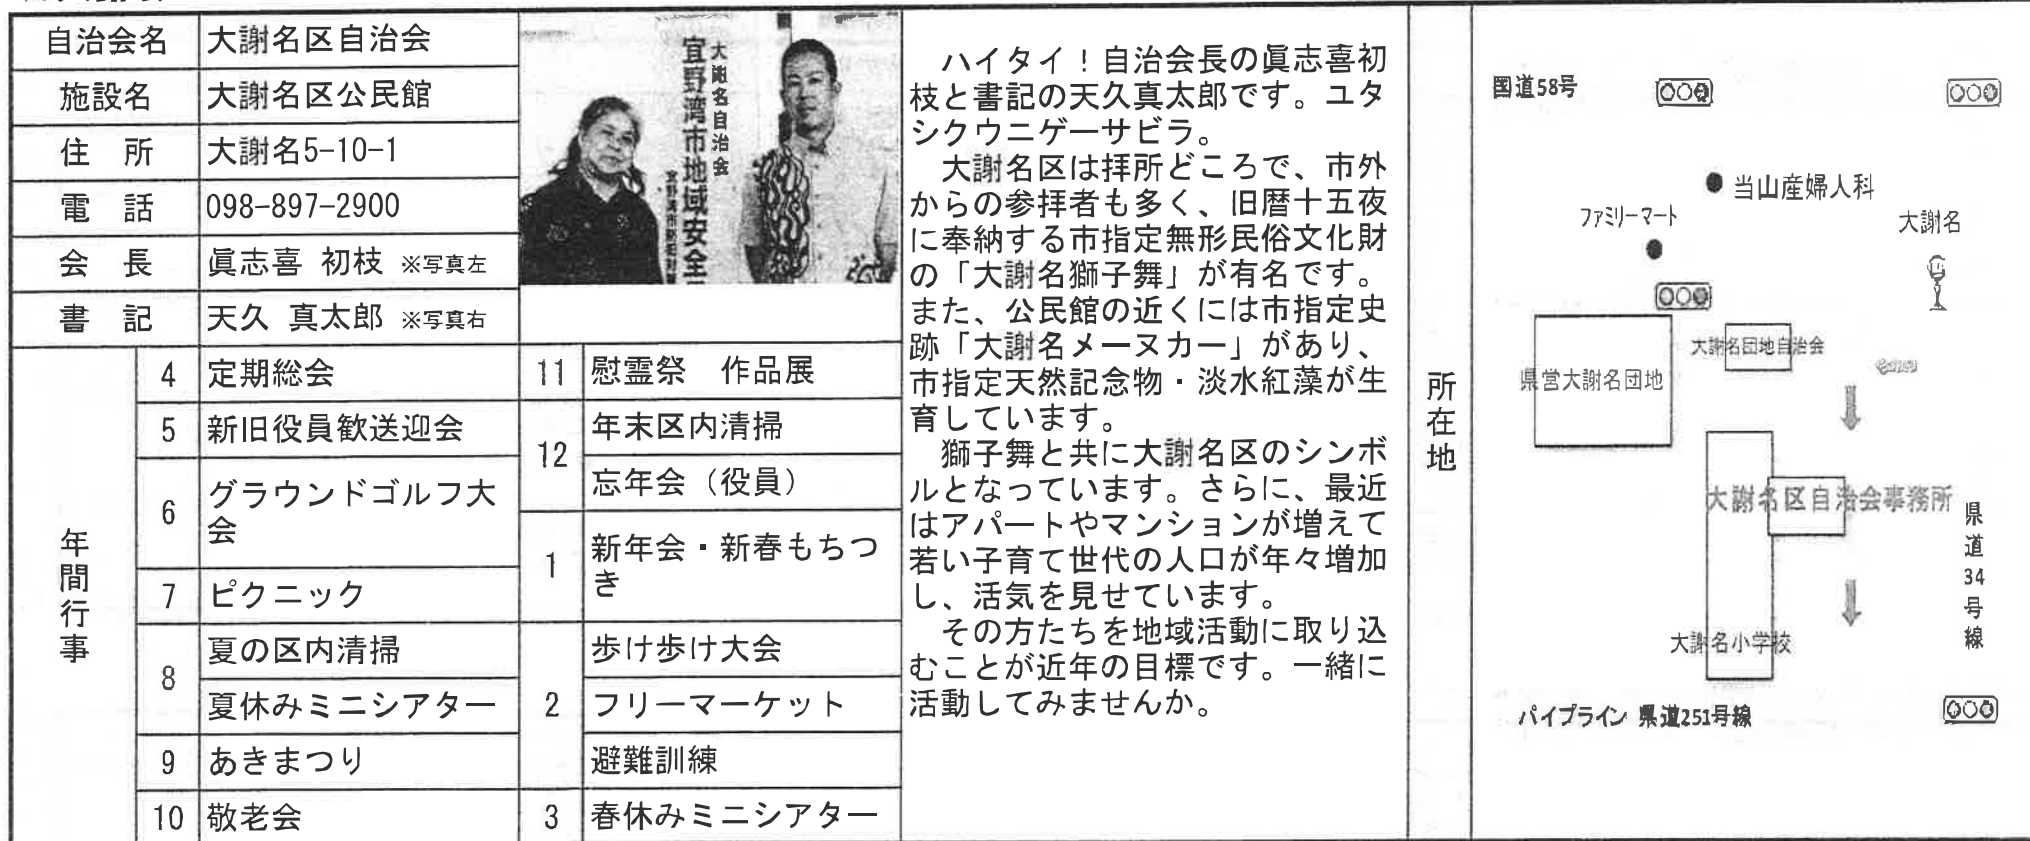 自治会名 大謝名区自治会
施設名 大謝名区公民館
住　所 大謝名5-10-1
電　話 098-897-2900
会　長 眞志喜 初枝 ※写真左
書　記 天久 真太郎 ※写真右
大謝名自治会
宜野湾市地域安全
年間行事
4 定期総会
5 新旧役員歓送迎会
6 グラウンドゴルフ大
会
7 ピクニック
8 夏の区内清掃
夏休みミニシアター
9 あきまつり
10 敬老会
11 慰霊祭　作品展
12 年末区内清掃
忘年会（役員）
1 新年会・新春もちつ
き
2 歩け歩け大会
フリーマーケット
避難訓練
3 春休みミニシアター
ハイタイ！自治会長の眞志喜初
枝と書記の天久真太郎です。ユタ
シクウニゲーサビラ。
大謝名区は拝所どころで、市外
からの参拝者も多く、旧暦十五夜
に奉納する市指定無形民俗文化財
の「大謝名獅子舞」が有名です。
また、公民館の近くには市指定史
跡「大謝名メーヌカー」があり、
市指定天然記念物・淡水紅藻が生
育しています。
獅子舞と共に大謝名区のシンボ
ルとなっています。さらに、最近
はアパートやマンションが増えて
若い子育て世代の人口が年々増加
し、活気を見せています。
その方たちを地域活動に取り込
むことが近年の目標です。一緒に
活動してみませんか。
所在地
国道58号
当山産婦人科
ファミリーマート
大謝名
大謝名団地自治会
県営大謝名団地
大謝名区自治会事務所
県道34号線
大謝名小学校
パイプライン 県道251号線